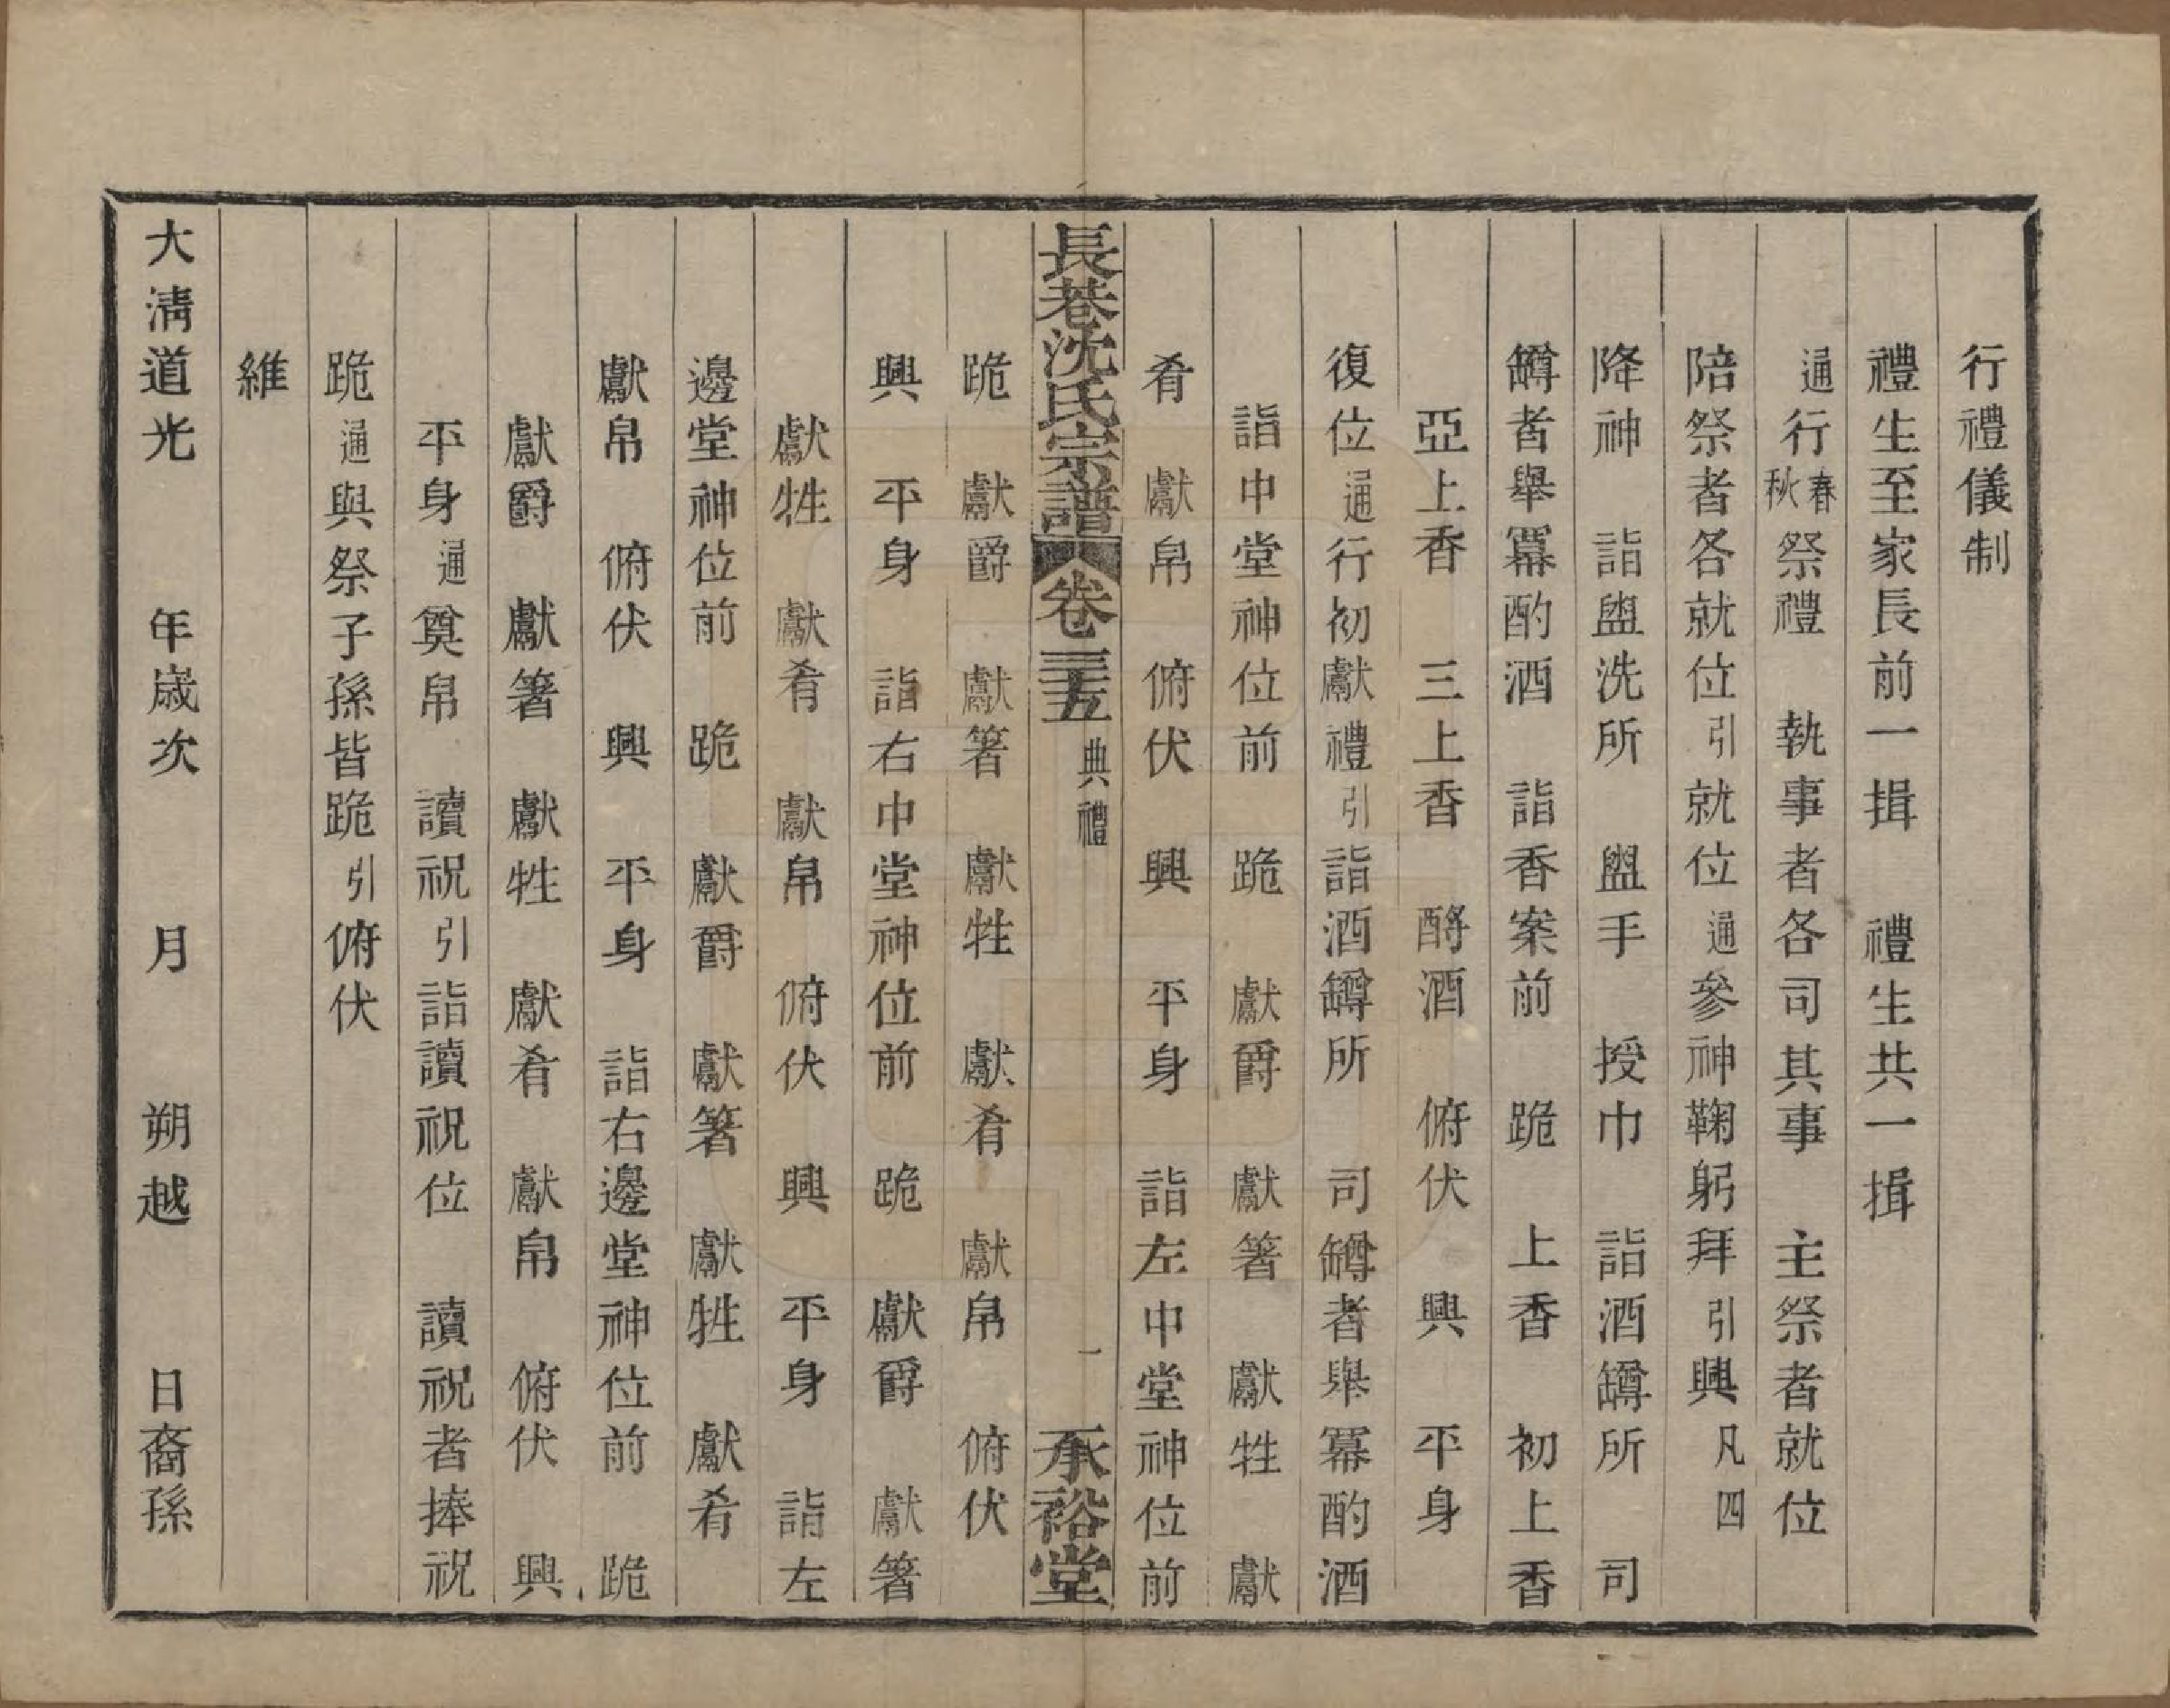 行禮儀制
禮生至家長前一揖　禮生共一揖
通行春秋祭禮　執事者各司其事　主祭者就位
陪祭者各就位引就位通參神鞠躬拜引興凡四
降神　詣盥洗所　盥手　授巾　詣酒罇所　司
罇者舉冪酌酒　詣香案前　跪　上香　初上香
亞上香　三上香　酹酒　俯伏　興　平身
復位通行初獻禮引詣酒罇所　司罇者舉冪酌酒
詣中堂神位前　跪　獻爵　獻箸　獻牲　獻
肴　獻帛　俯伏　興　平身　詣左中堂神位前
長巷沈氏宗譜　卷三十五　典禮　一　承裕堂
跪　獻爵　獻箸　獻牲　獻肴　獻帛　俯伏
興　平身　詣右中堂神位前　跪　獻爵　獻箸
獻牲　獻肴　獻帛　俯伏　興　平身　詣左
邊堂神位前　跪　獻爵　獻箸　獻牲　獻肴
獻帛　俯伏　興　平身　詣右邊堂神位前　跪
獻爵　獻箸　獻牲　獻肴　獻帛　俯伏　興
平身通奠帛　讀祝引詣讀祝位　讀祝者捧祝
跪通與祭子孫皆跪引俯伏
維
大清道光　年歲次　月　朔越　日裔孫